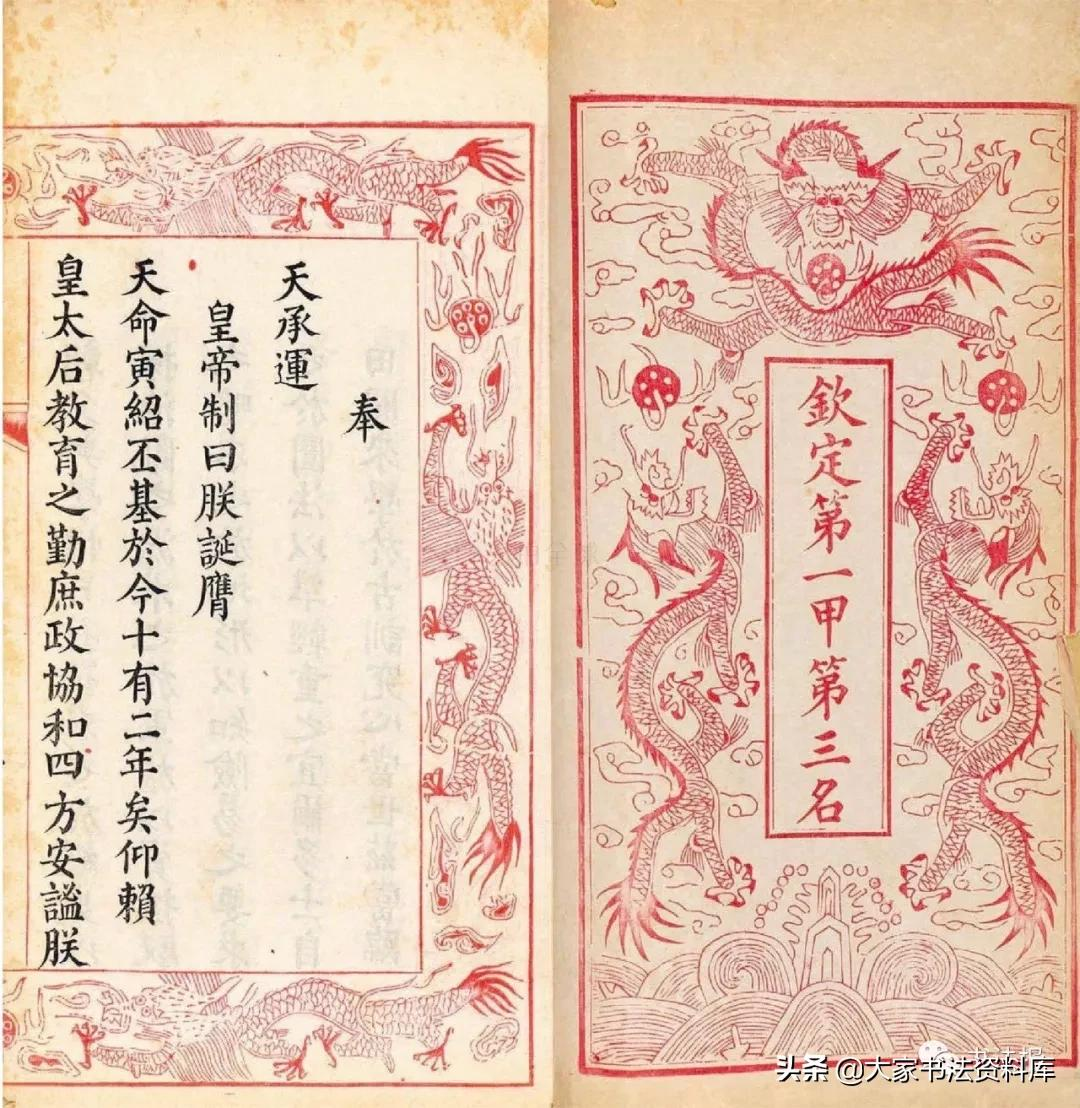 欽定第一甲第三名
奉
天承運
皇帝制曰朕誕膺
天命寅紹丕基於今十有二年矣仰賴
皇太后教育之勤庶政協和四方安謐朕
头条 @大家书法资料库